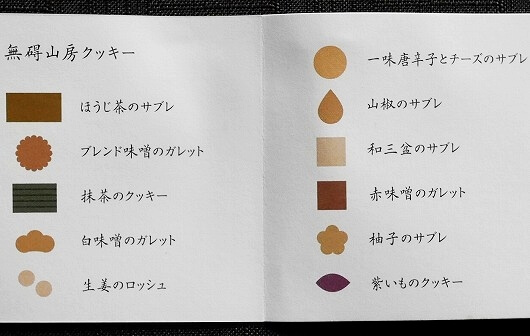 無碍山房クッキー
ほうじ茶のサブレ
ブレンド味噌のガレット
抹茶のクッキー
白味噌のガレット
生姜のロッシュ
一味唐辛子とチーズのサブレ
山椒のサブレ
和三盆のサブレ
赤味噌のガレット
柚子のサブレ
紫いものクッキー